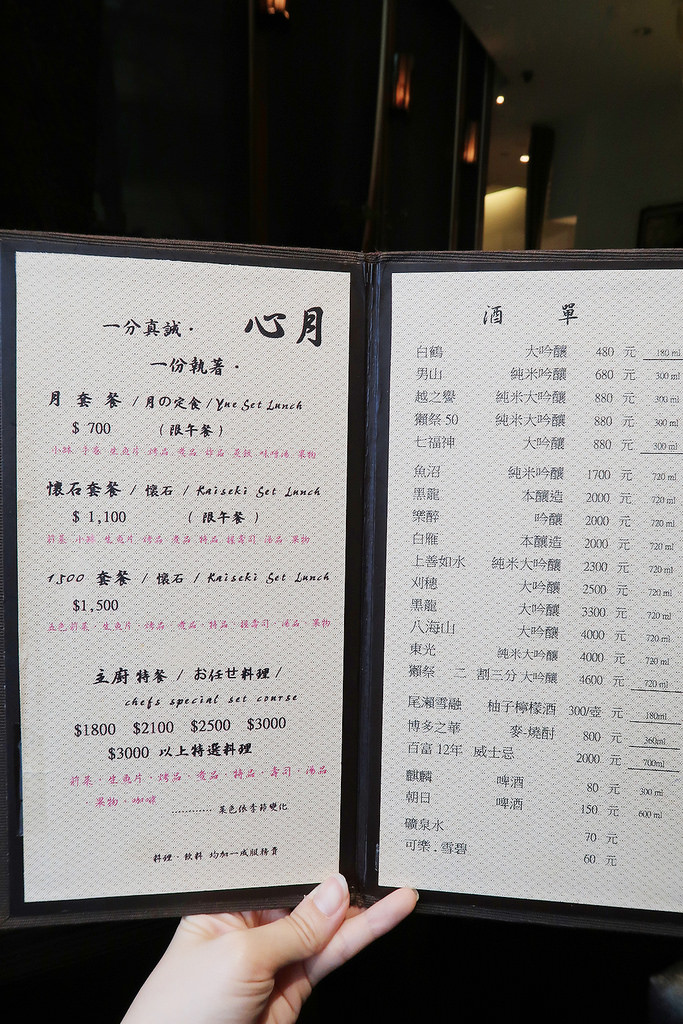 心月
一分真誠·
一份執著·
月 套 餐 / 月の定食 / Yue Set Lunch
$ 700 （限午餐）
小缽 手卷 生魚片 烤品 煮品 炸品 蒸飯 味噌湯 果物
懷石套餐 / 懷石 / Kaiseki Set Lunch
$ 1,100 （限午餐）
前菜 小缽 生魚片 烤品 煮品 特品 握壽司 湯品 果物
1,500 套餐 / 懷石 / Kaiseki Set Lunch
$1,500
五色前菜·生魚片·烤品·煮品·特品·握壽司·湯品·果物
主廚特餐 / お任せ料理 /
chefs special set course
$1800 $2100 $2500 $3000
$3000 以上特選料理
前菜·生魚片·烤品·煮品·特品·壽司·湯品
·果物·咖啡
............菜色依季節變化
料理·飲料 均加一成服務費
酒 單
白鶴 大吟釀 480 元 180 ml
男山 純米大吟釀 680 元 300 ml
越之譽 純米大吟釀 880 元 300 ml
獺祭 50 純米大吟釀 880 元 300 ml
七福神 大吟釀 880 元 300 ml
魚沼 純米吟釀 1700 元 720 ml
黑龍 本釀造 2000 元 720 ml
樂醉 吟釀 2000 元 720 ml
白雁 本釀造 2000 元 720 ml
上善如水 純米大吟釀 2300 元 720 ml
刈穗 大吟釀 2500 元 720 ml
黑龍 大吟釀 3300 元 720 ml
八海山 大吟釀 4000 元 720 ml
東光 純米大吟釀 4000 元 720 ml
獺祭 二 割三分 大吟釀 4600 元 720 ml
尾瀨雪融 柚子檸檬酒 300/壺 元 180ml
博多之華 麥-燒酎 800 元 360ml
百富 12年 威士忌 2000 元 700ml
麒麟 啤酒 80 元 300 ml
朝日 啤酒 150 元 600 ml
礦泉水 70 元
可樂 . 雪碧 60 元